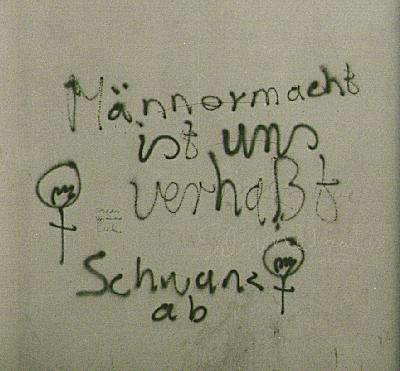 Männermacht
ist uns
verhaßt
Schwanz
ab